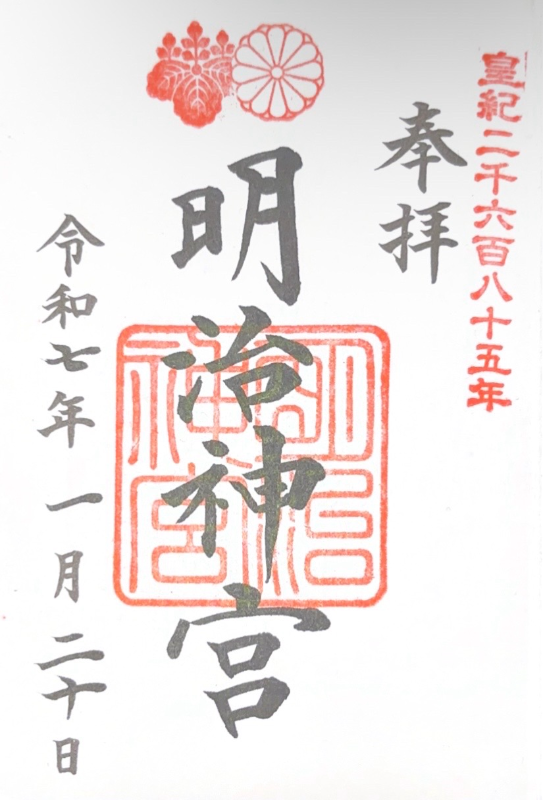 皇紀二千六百八十五年
奉拝
明治神宮
明治
神宮
令和七年 一月 二十日